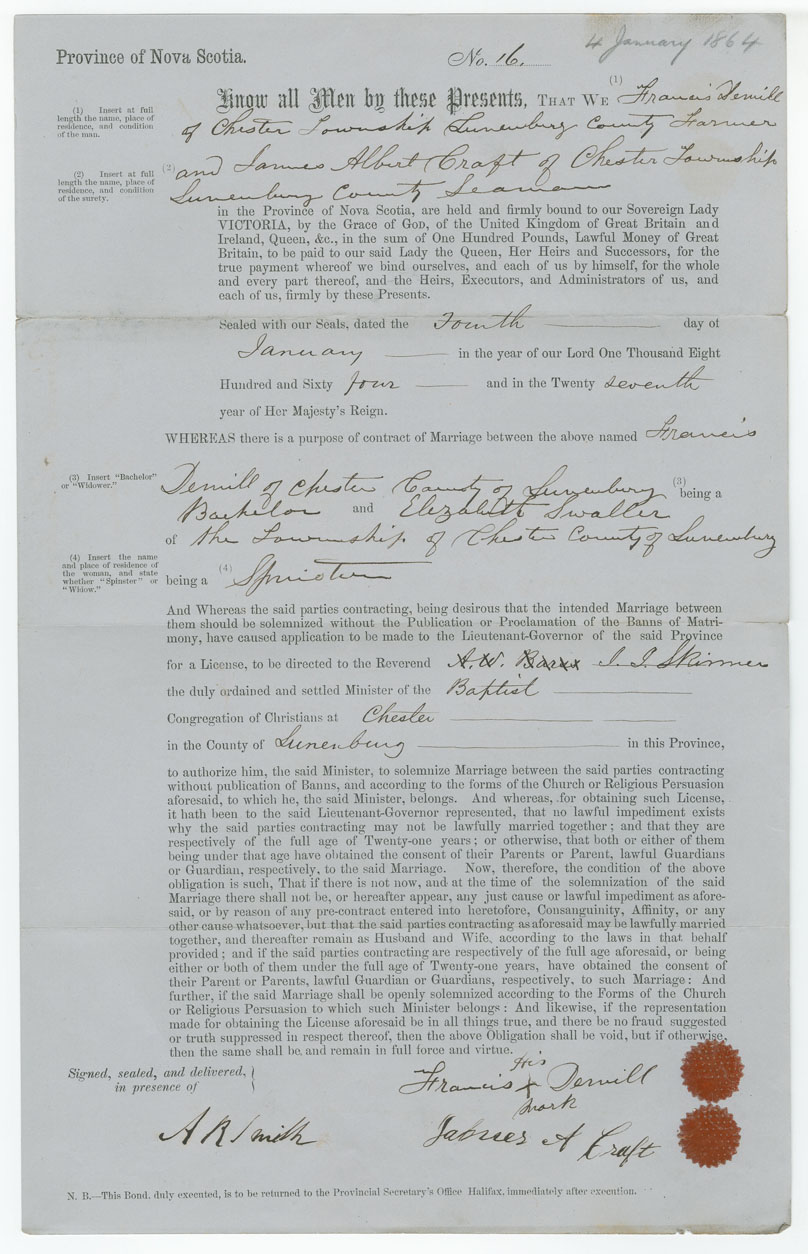 4 January 1864
Province of Nova Scotia.
No. 16.
(1) Insert at full length the name, place of residence, and condition of the man.
Know all Men by these Presents, THAT WE (1) Francis Demill
of Chester Township Lunenburg County Farmer
(2) Insert at full length the name, place of residence, and condition of the surety.
(2) and James Albert Craft of Chester Township
Lunenburg County Seaman
in the Province of Nova Scotia, are held and firmly bound to our Sovereign Lady
VICTORIA, by the Grace of GOD, of the United Kingdom of Great Britain and
Ireland, Queen, &c., in the sum of One Hundred Pounds, Lawful Money of Great
Britain, to be paid to our said Lady the Queen, Her Heirs and Successors, for the
true payment whereof we bind ourselves, and each of us by himself, for the whole
and every part thereof, and the Heirs, Executors, and Administrators of us, and
each of us, firmly by these Presents.
Sealed with our Seals, dated the Fourth day of
January in the year of our Lord One Thousand Eight
Hundred and Sixty four and in the Twenty seventh
year of Her Majesty's Reign.
WHEREAS there is a purpose of contract of Marriage between the above named Francis
(3) Insert "Bachelor" or "Widower."
Demill of Chester County of Lunenburg (3) being a
Bachelor and Elezabeth Swaller
of the Township of Chester County of Lunenburg
(4) Insert the name and place of residence of the woman, and state whether "Spinster" or "Widow."
being a (4) Spinster
And Whereas the said parties contracting, being desirous that the intended Marriage between
them should be solemnized without the Publication or Proclamation of the Banns of Matri-
mony, have caused application to be made to the Lieutenant-Governor of the said Province
for a License, to be directed to the Reverend A. W. I. I. Skinner
the duly ordained and settled Minister of the Baptist
Congregation of Christians at Chester
in the County of Lunenburg in this Province,
to authorize him, the said Minister, to solemnize Marriage between the said parties contracting
without publication of Banns, and according to the forms of the Church or Religious Persuasion
aforesaid, to which he, the said Minister, belongs. And whereas, for obtaining such License,
it hath been to the said Lieutenant-Governor represented, that no lawful impediment exists
why the said parties contracting may not be lawfully married together; and that they are
respectively of the full age of Twenty-one years; or otherwise, that both or either of them
being under that age have obtained the consent of their Parents or Parent, lawful Guardians
or Guardian, respectively, to the said Marriage. Now, therefore, the condition of the above
obligation is such, That if there is not now, and at the time of the solemnization of the said
Marriage there shall not be, or hereafter appear, any just cause or lawful impediment as afore-
said, or by reason of any pre-contract entered into heretofore, Consanguinity, Affinity, or any
other cause whatsoever, but that the said parties contracting as aforesaid may be lawfully married
together, and thereafter remain as Husband and Wife, according to the laws in that behalf
provided; and if the said parties contracting are respectively of the full age aforesaid, or being
either or both of them under the full age of Twenty-one years, have obtained the consent of
their Parent or Parents, lawful Guardian or Guardians, respectively, to such Marriage: And
further, if the said Marriage shall be openly solemnized according to the Forms of the Church
or Religious Persuasion to which such Minister belongs: And likewise, if the representation
made for obtaining the License aforesaid be in all things true, and there be no fraud suggested
or truth suppressed in respect thereof, then the above Obligation shall be void, but if otherwise,
then the same shall be, and remain in full force and virtue.
Signed, sealed, and delivered,
in presence of
His
Francis X Demill
mark
A R Smith
James A Craft
N. B.—This Bond, duly executed, is to be returned to the Provincial Secretary's Office Halifax, immediately after execution.